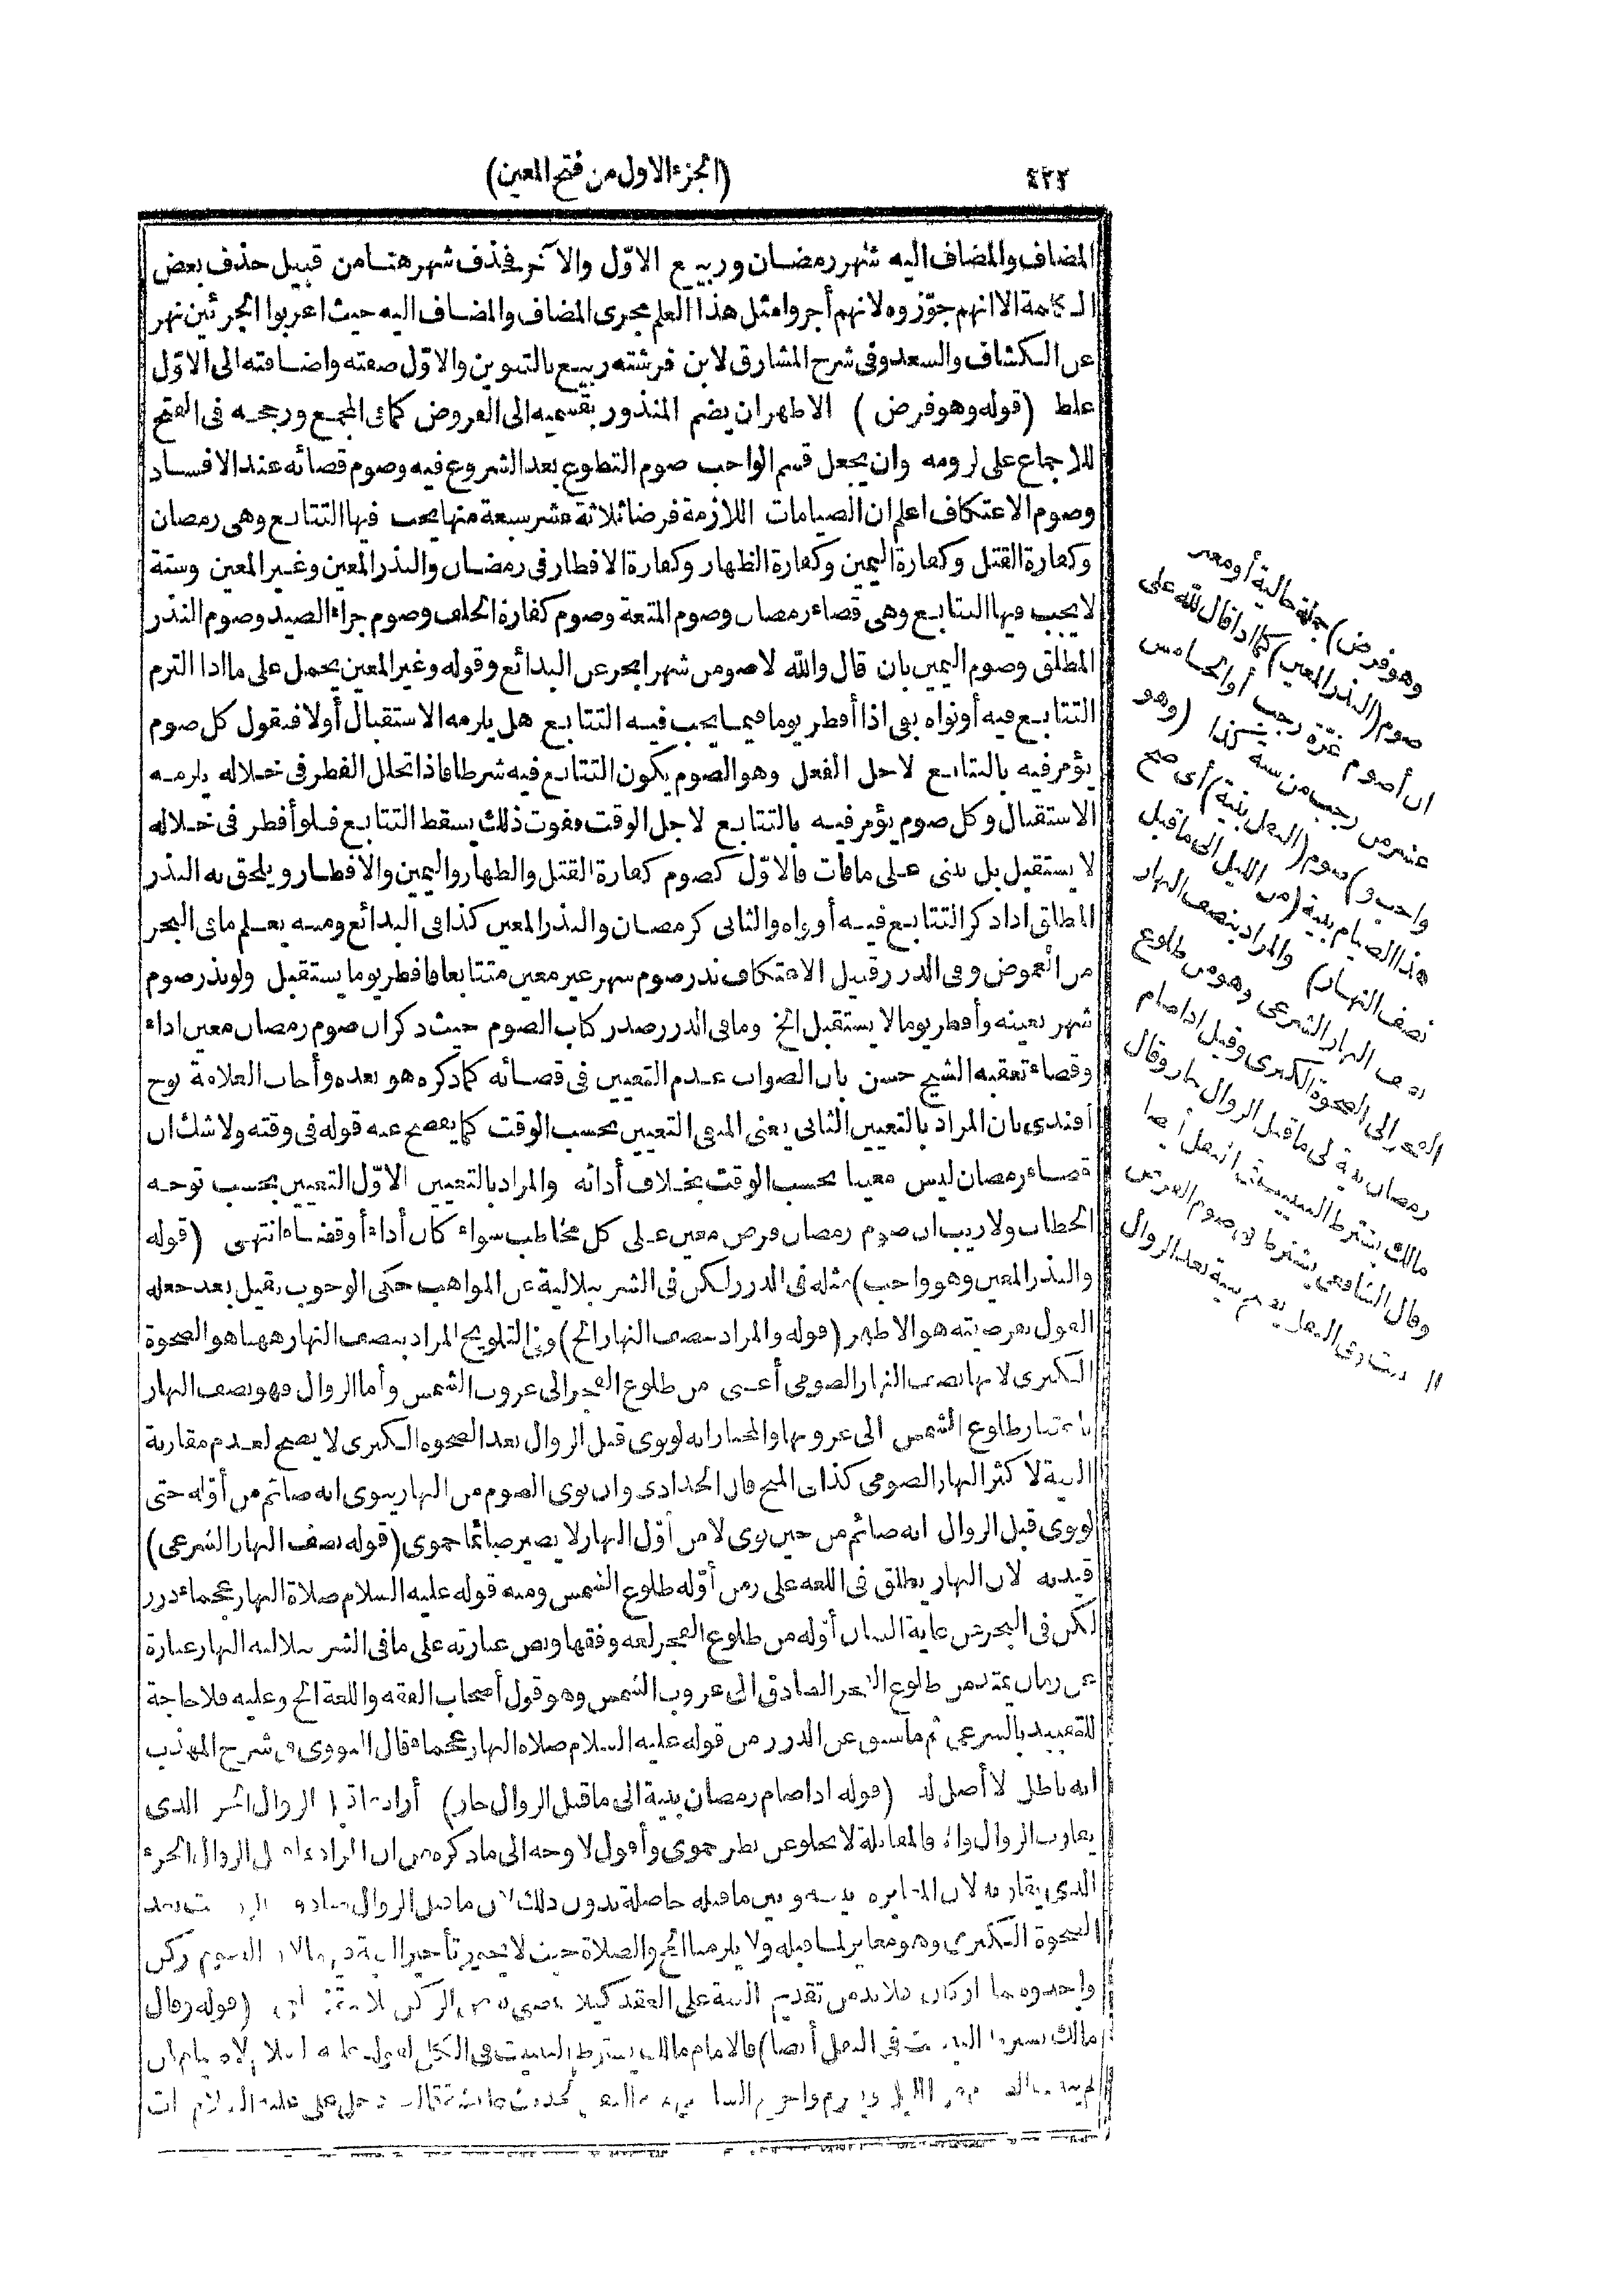 ٤٢٢
(الجزء الاول من فتح المعين)
المضاف والمضاف اليه شهر رمضان وربيع الاوّل والآخر فحذف شهر هنا من قبيل حذف بعض
الكلمة الا انهم جوّزوه لانهم أجروا مثل هذا العلم مجرى المضاف والمضاف اليه حيث اعربوا الجزئين نهر
عن الكشاف والسعد وفى شرح المشارق لابن فرشته ربيع بالتنوين والاوّل صفته واضافته الى الاوّل
غلط (قوله وهو فرض) الاظهر ان يضم المنذور بقسميه الى الفروض كما فى المجمع ورجحه فى الفتح
للاجماع على لزومه وان يجعل قسم الواجب صوم التطوع بعد الشروع فيه وصوم قضائه عند الافساد
وصوم الاعتكاف اعلم ان الصيامات اللازمة فرضا ثلاثة عشر سبعة منها يجب فيها التتابع وهى رمضان
وكفارة القتل وكفارة اليمين وكفارة الظهار وكفارة الافطار فى رمضان والنذر المعين وغير المعين وستة
لا يجب فيها التتابع وهى قضاء رمضان وصوم المتعة وصوم كفارة الحلف وصوم جزاء الصيد وصوم النذر
المطلق وصوم اليمين بان قال والله لاصومن شهرا بحر عن البدائع وقوله وغير المعين يحمل على ما اذا التزم
التتابع فيه أو نواه بقى اذا أفطر يوما فيما يجب فيه التتابع هل يلزمه الاستقبال أولا فنقول كل صوم
يؤمر فيه بالتتابع لاجل الفعل وهو الصوم يكون التتابع فيه شرطا فاذا تخلل الفطر فى خلاله يلزمه
الاستقبال وكل صوم يؤمر فيه بالتتابع لاجل الوقت ففوت ذلك يسقط التتابع فلو أفطر فى خلاله
لا يستقبل بل يبنى على ما فات فالاوّل كصوم كفارة القتل والظهار واليمين والافطار ويلحق به النذر
المطلق اذا ذكر التتابع فيه أو نواه والثانى كرمضان والنذر المعين كذا فى البدائع ومنه يعلم ما فى البحر
من الغموض وفى الدرر قبيل الاعتكاف نذر صوم شهر غير معين متتابعا فافطر يوما يستقبل ولو نذر صوم
شهر بعينه وأفطر يوما لا يستقبل الخ وما فى الدرر صدر كتاب الصوم حيث ذكر ان صوم رمضان معين اداء
وقضاء تعقبه الشيخ حسن بان الصواب عدم التعيين فى قضائه كما ذكره هو بعده وأجاب العلامة نوح
أفندى بان المراد بالتعيين الثانى يعنى المنفى التعيين بحسب الوقت كما يفصح عنه قوله فى وقته ولا شك ان
قضاء رمضان ليس معينا بحسب الوقت بخلاف أدائه والمراد بالتعيين الاوّل التعيين بحسب توجه
الخطاب ولا ريب ان صوم رمضان فرض معين على كل مخاطب سواء كان أداء أو قضاء انتهى (قوله
والنذر المعين وهو واجب) مثله فى الدرر لكن فى الشرنبلالية عن المواهب حكى الوجوب بقيل بعد جعله
القول بفرضيته هو الاظهر (قوله والمراد بنصف النهار الخ) وفى التلويح المراد بنصف النهار ههنا هو الضحوة
الكبرى لانها نصف النهار الصومى أعنى من طلوع الفجر الى غروب الشمس وأما الزوال فهو نصف النهار
باعتبار طلوع الشمس الى غروبها والمختار انه لو نوى قبل الزوال بعد الضحوة الكبرى لا يصح لعدم مقارنة
النية لاكثر النهار الصومى كذا فى المنح قال الحدادى وان نوى الصوم من النهار ينوى انه صائم من أوّله حتى
لو نوى قبل الزوال انه صائم من حين نوى لا من أوّل النهار لا يصير صائما حموى (قوله نصف النهار الشرعى)
قيد به لان النهار يطلق فى اللغة على زمن أوّله طلوع الشمس ومنه قوله عليه السلام صلاة النهار عجماء درر
لكن فى البحر عن غاية البيان أوّله من طلوع الفجر لغة وفقها ونص عبارته على ما فى الشرنبلالية النهار عبارة
عن زمان يمتد من طلوع الفجر الصادق الى غروب الشمس وهو قول أصحاب الفقه واللغة الخ وعليه فلا حاجة
للتقييد بالشرعى ثم ما سبق عن الدرر من قوله عليه السلام صلاة النهار عجماء قال النووى فى شرح المهذب
انه باطل لا أصل له (قوله اذا صام رمضان بنية الى ما قبل الزوال جاز) أراد الزوال الذى
يقارب الزوال والا فالمقابلة لا يخلو عن نظر حموى وأقول لا وجه الى ما ذكره من ان المراد الزوال الجزء
الذى يقاربه لان المغايرة بينه وبين ما قبله حاصلة بدون ذلك لان ما قبل الزوال
الضحوة الكبرى وهو مغاير لما قبله ولا يلزمنا الحج والصلاة حيث لا يجوز تأخير النية الصوم ركن
واحد وهما اركان فلا بد من تقديم النية على العقد كيلا الركن (قوله وقال
مالك يشترط التبييت فى النفل أيضا) فالامام مالك يشترط التبييت فى الكل
عليه السلام
وهو فرض) جملة حالية أو معترضة
صوم (النذر المعين) كما اذا قال لله على
ان أصوم غرّة رجب أو الخامس
عشر من رجب من سنة (وهو
واجب و) صوم (النفل بنية) أى صح
هذا الصيام بنية (من الليل الى ما قبل
نصف النهار) والمراد بنصف النهار
نصف النهار الشرعى وهو من طلوع
الفجر الى الضحوة الكبرى وقيل اذا صام
رمضان بنية الى ما قبل الزوال جاز وقال
مالك يشترط التبييت فى النفل أيضا
وقال الشافعى يشترط فى صوم الفرض
التبييت وفى النفل يصح بنية بعد الزوال